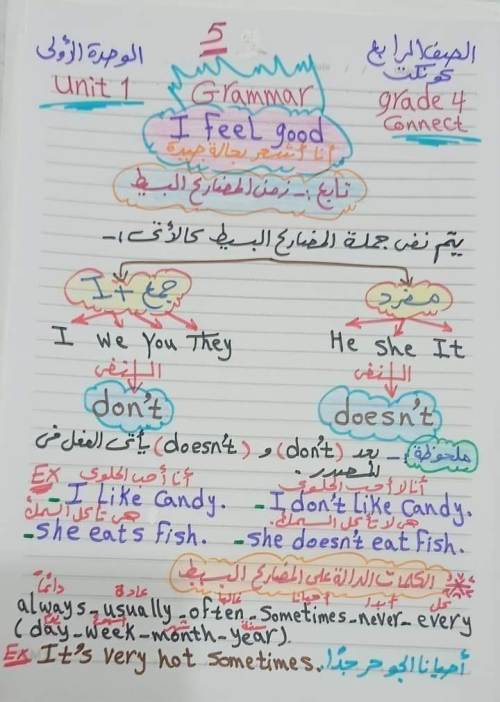 5
الصف الرابع
الوحدة الأولى
كونكت
Unit 1
Grammar
grade 4
Connect
I feel good
أنا أشعر بحالة جيدة
تابع :- زمن المضارع البسيط
يتم نفى جملة المضارع البسيط كالأتى :-
جمع + I
مفرد
I we You They
He she It
النفى
النفى
don't
doesn't
ملحوظة :- بعد (don't) و (doesn't) يأتى الفعل فى
المصدر.
Ex
أنا أحب الحلوى
أنا لا أحب الحلوى
- I Like candy.
- I don't Like candy.
هى تأكل السمك
هى لا تأكل السمك
- she eats fish.
- she doesn't eat fish.
الكلمات الدالة على المضارع البسيط
دائماً عادة غالبا أحيانا أبدا كل
always - usually - often - sometimes - never - every
يوم أسبوع شهر سنة
(day - week - month - year).
Ex It's very hot sometimes. أحيانا الجو حر جدًا.